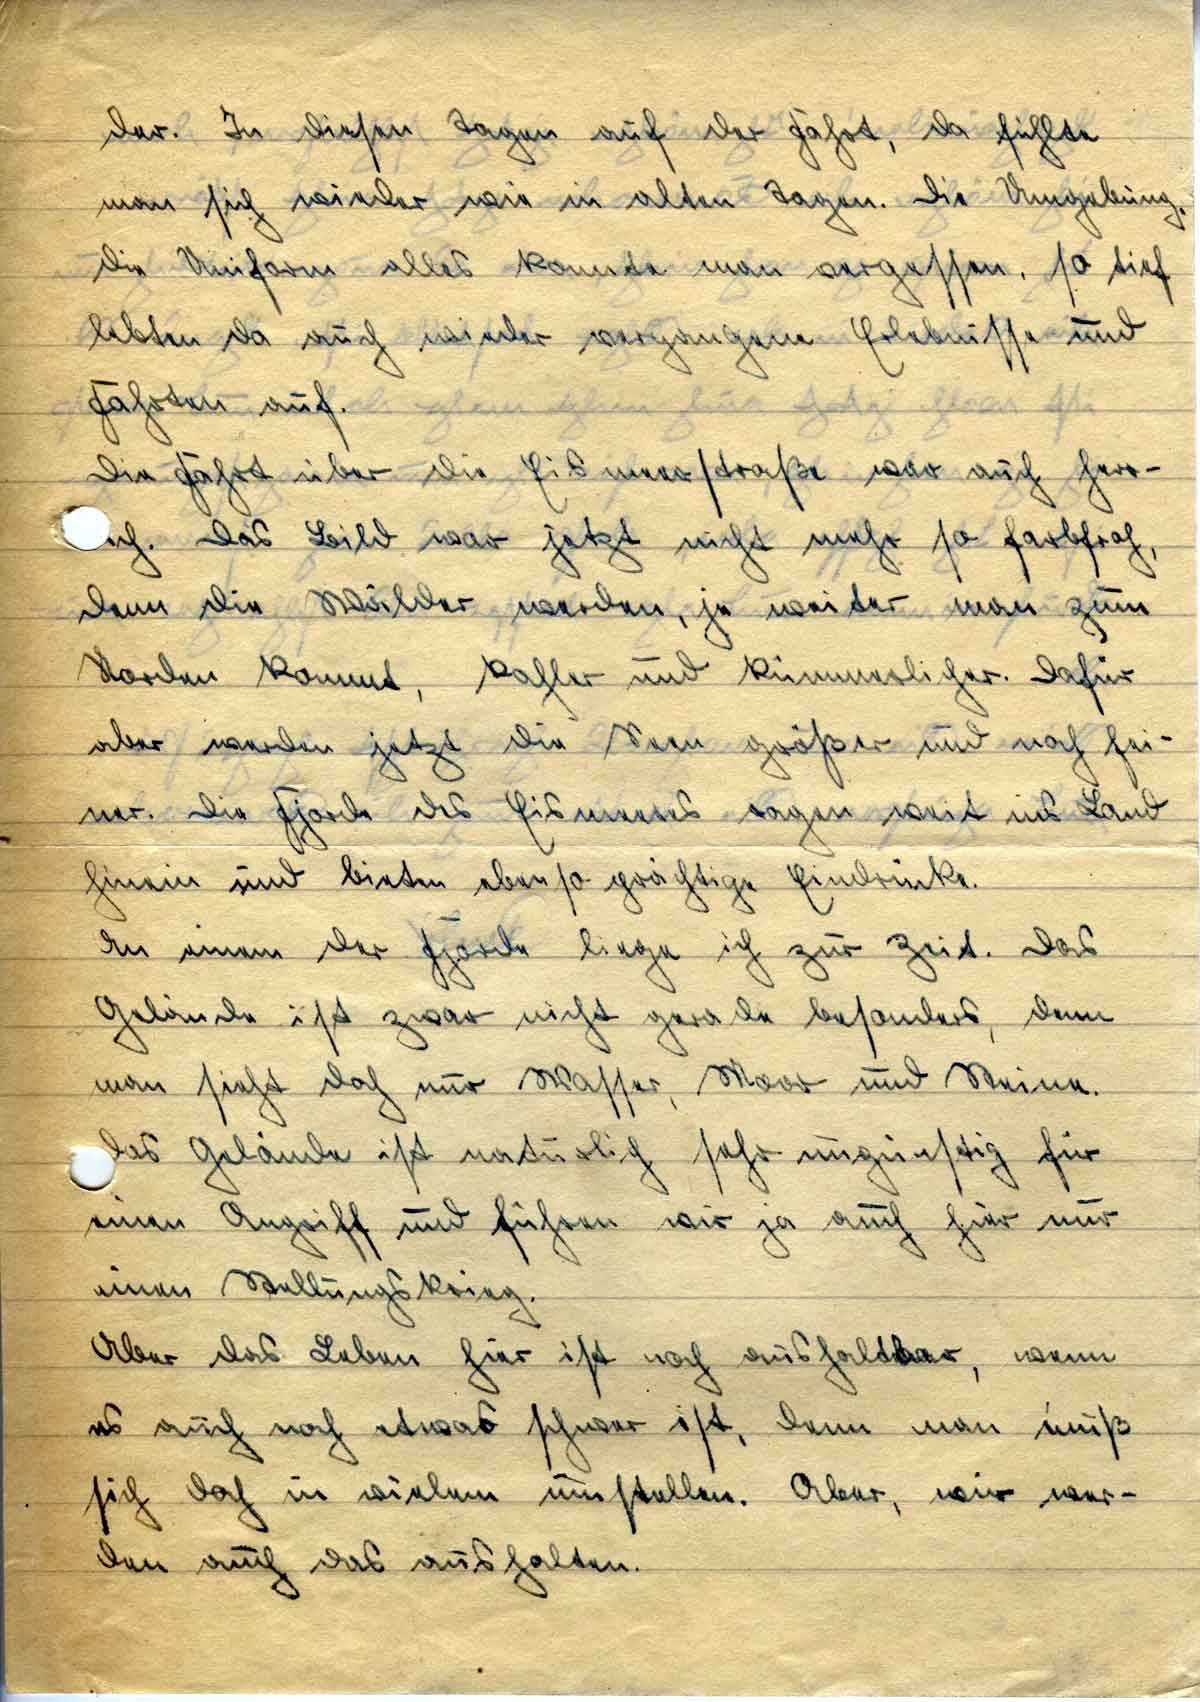 der. In diesen Tagen auf der Fahrt, da fühlte
man sich wieder wie in alten Tagen. Die Umgebung,
die Uniform alles konnte man vergessen, so tief
lebten da auch wieder vergangene Erlebnisse und
Fahrten auf.
Die Fahrt über die Eismeerstraße war auch herr-
ich. Das Bild war jetzt nicht mehr so farbfroh,
denn die Wälder werden, je weiter man zum
Norden kommt, kahler und kümmerlicher. Dafür
aber werden jetzt die Seen größer und noch fei-
ner. Die Fjorde des Eismeeres ragen weit ins Land
hinein und bieten ebenso prächtige Eindrücke.
An einem der Fjorde liege ich zur Zeit. Das
Gelände ist zwar nicht gerade besonders, denn
man sieht doch nur Wasser, Moor und Steine.
Das Gelände ist natürlich sehr ungünstig für
einen Angriff und führen wir ja auch hier nur
einen Stellungskrieg.
Aber das Leben hier ist noch aushaltbar, wenn
es auch noch etwas schwer ist, denn man muß
sich doch in vielem umstellen. Aber, wir wer-
den auch das aushalten.